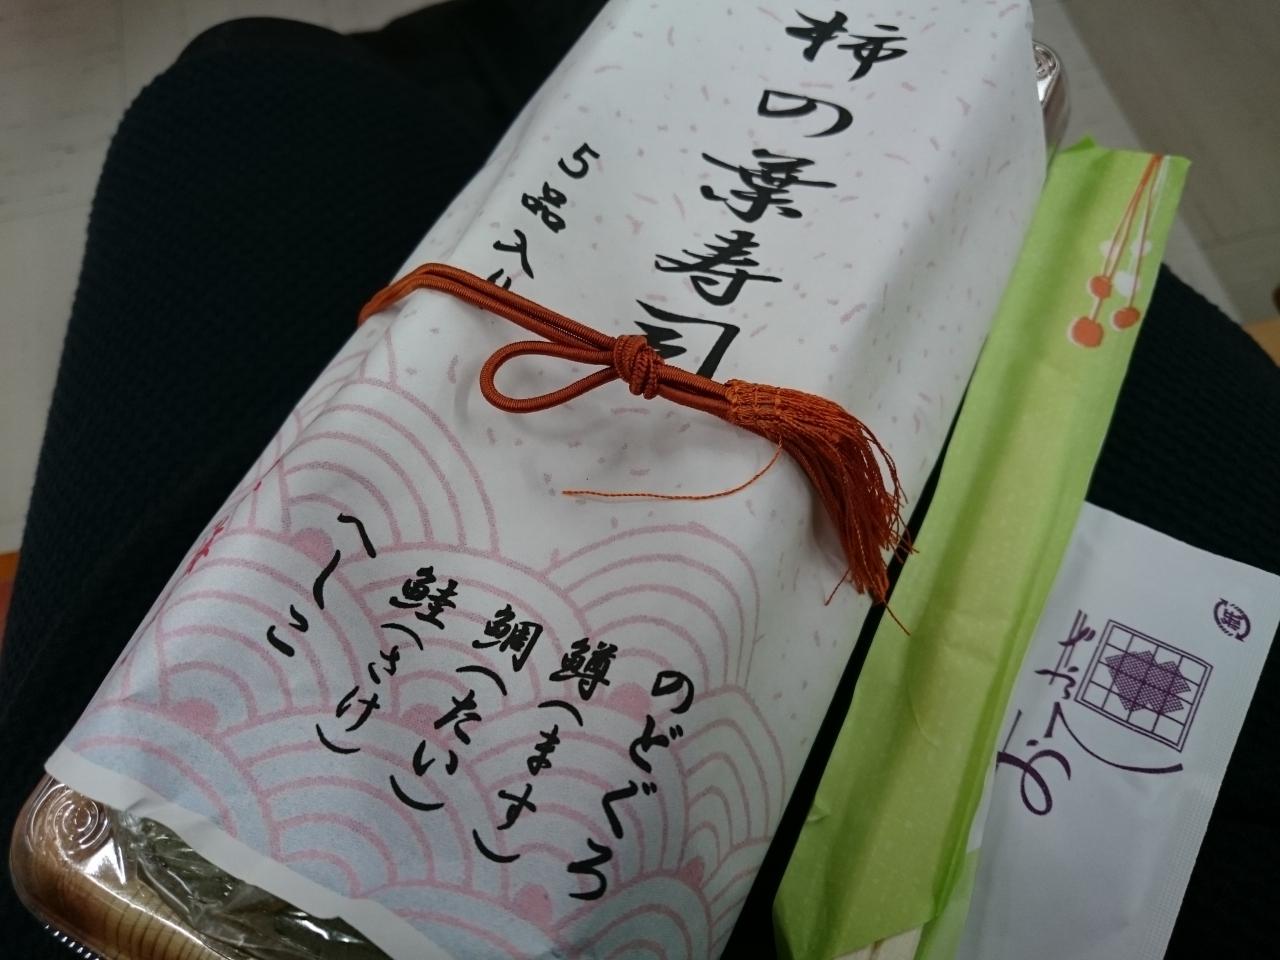 柿の葉寿司
5品入り
のどぐろ
鱒(ます)
鯛(たい)
鮭(さけ)
へしこ
おてふき